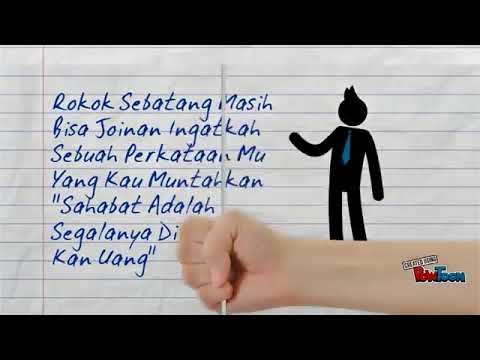 Rokok Sebatang Masih
Bisa Joinan Ingatkah
Sebuah Perkataan Mu
Yang Kau Muntahkan
"Sahabat Adalah
Segalanya Di
Kan Uang"
CREATED USING
PowToon